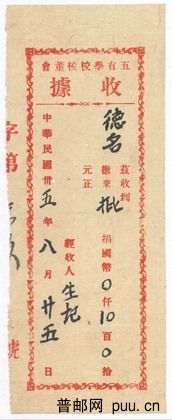 五有學校校董會
收據
茲收到
德名
繳來
捐國幣0仟10百0拾
元正
經收人 生記
中華民國卅五年八月廿五日
字第
號
普邮网 puu.cn